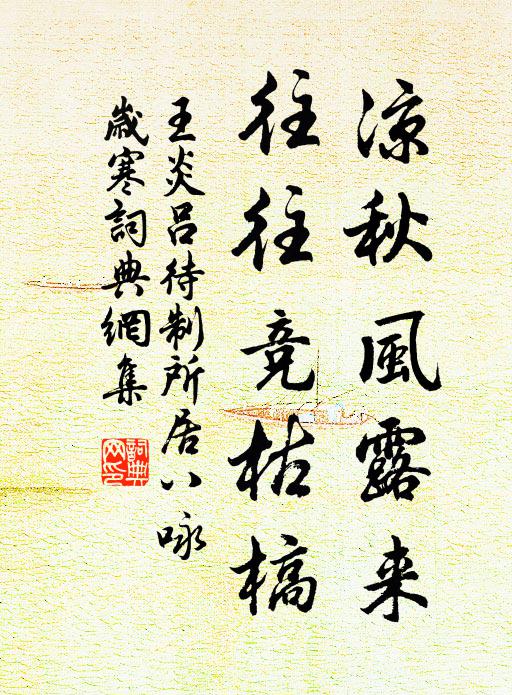 涼秋風露来
往往竞枯槁
王炎吕待制所居八咏
歲寒詞典網集
詞典网印